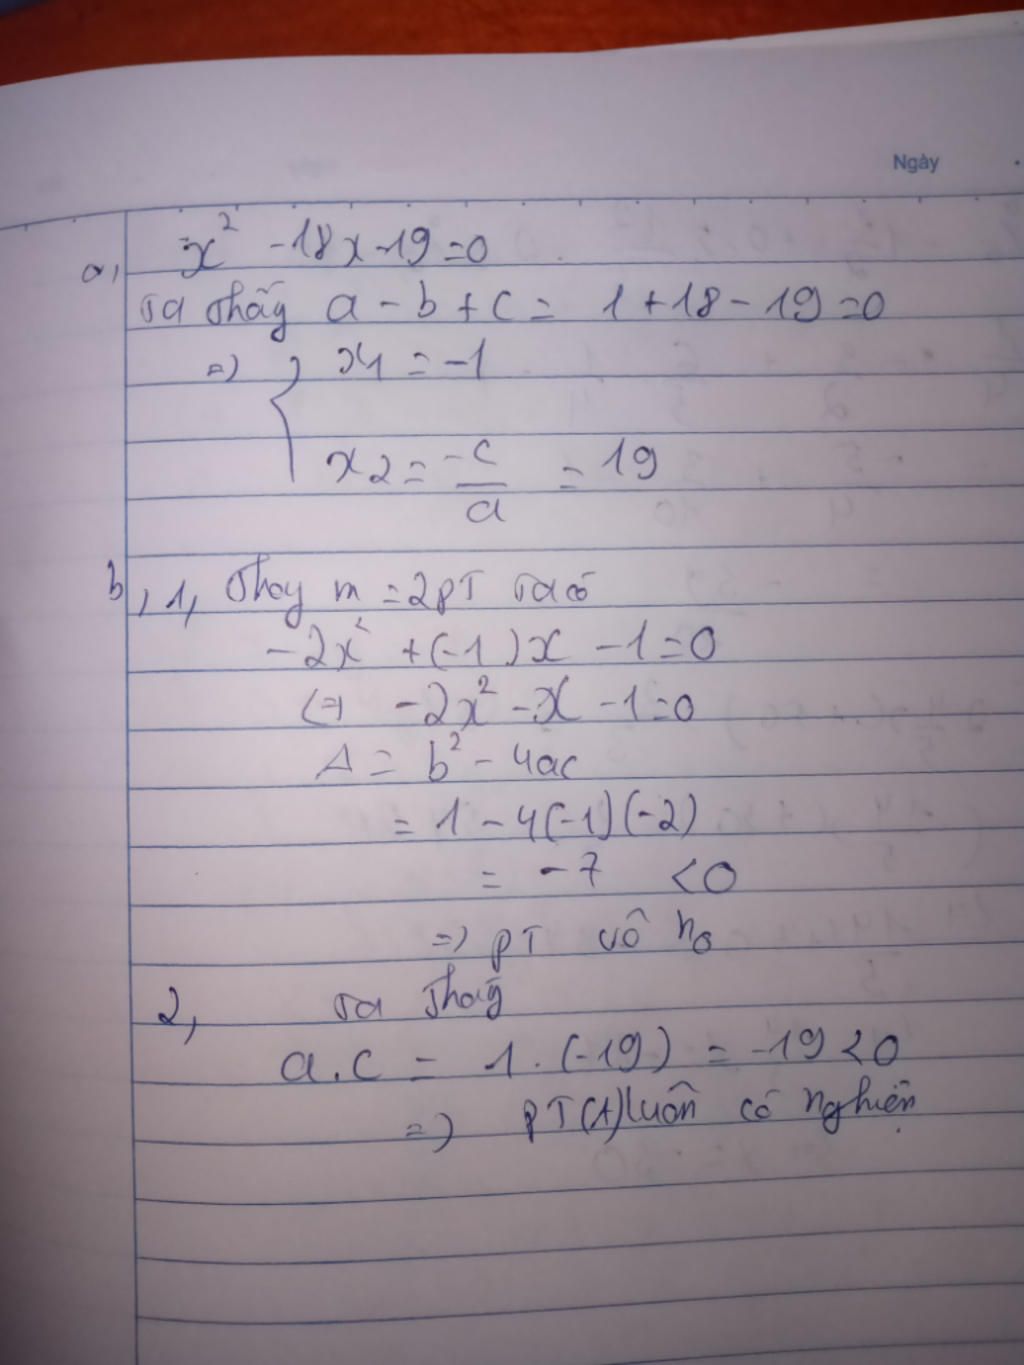 Ngày
a, x² - 18x - 19 = 0
Ta thấy a - b + c = 1 + 18 - 19 = 0
=> { x1 = -1
x2 = -c/a = 19
b, 1, Thay m = 2 PT ta có
-2x² + (-1)x - 1 = 0
<=> -2x² - x - 1 = 0
Δ = b² - 4ac
= 1 - 4(-1)(-2)
= -7 < 0
=> PT vô no
2, Ta thấy
a.c = 1.(-19) = -19 < 0
=> PT(1) luôn có nghiện